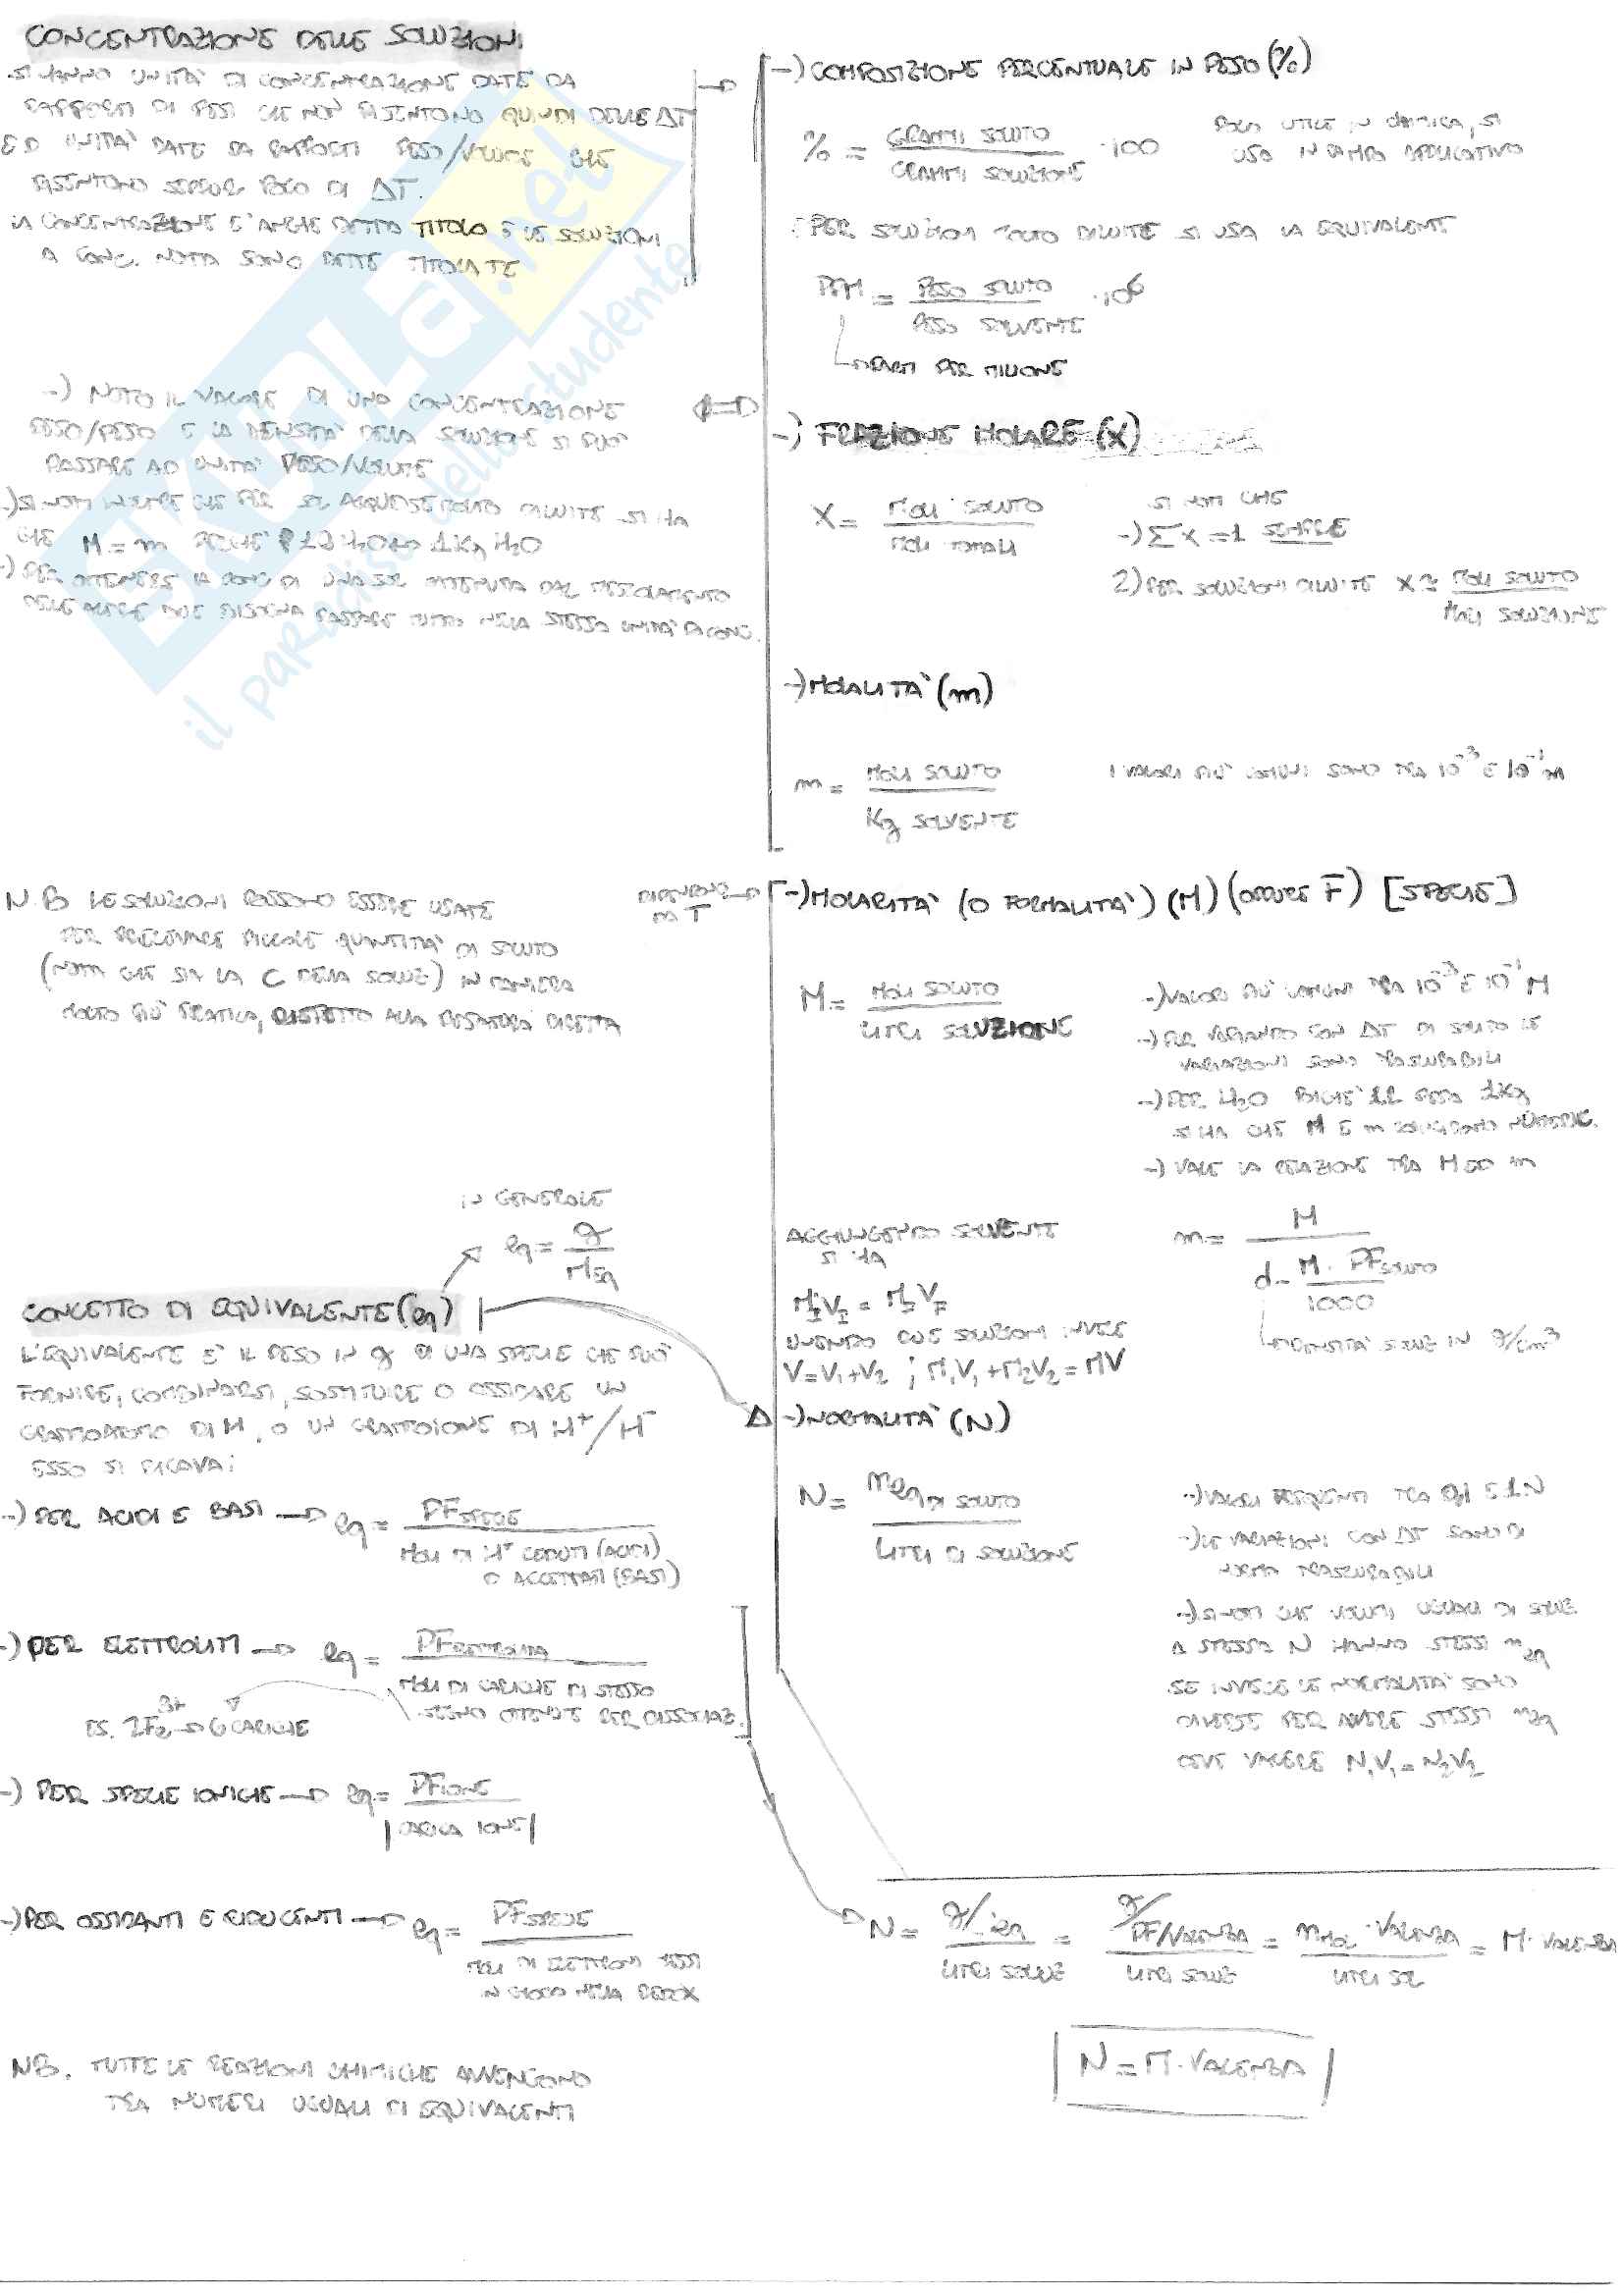 CONCENTRAZIONE DELLE SOLUZIONI
SI HANNO UNITA' DI CONCENTRAZIONE DATE DA
RAPPORTI DI PESI CHE NON RISENTONO QUINDI DELLE ΔT
ED UNITA' DATE DA RAPPORTI PESO/VOLUME CHE
RISENTONO SEPPUR POCO DI ΔT.
LA CONCENTRAZIONE E' ANCHE DETTA TITOLO E LE SOLUZIONI
A CONC. NOTA SONO DETTE TITOLATE
-) NOTO IL VALORE DI UNA CONCENTRAZIONE
PESO/PESO E LA DENSITA' DELLA SOLUZIONE SI PUO'
PASSARE AD UNITA' PESO/VOLUME
-) SI NOTI INOLTRE CHE PER SOL ACQUOSE MOLTO DILUITE SI HA
CHE M = m POICHE' 1L H2O 1Kg H2O
-) PER OTTENERE LA CONC DI UNA SOL OTTENUTA DAL MESCOLAMENTO
DELLE ALTRE DUE BISOGNA PASSARE TUTTO NELLA STESSA UNITA' DI CONC.
N.B LE SOLUZIONI POSSONO ESSERE USATE
PER PRELEVARE PICCOLE QUANTITA' DI SOLUTO
(NOTA CHE SIA LA C DELLA SOLUZ) IN MANIERA
MOLTO PIU' PRATICA, RISPETTO ALLA PESATURA DIRETTA
IN GENERALE
eq = g / MEq
CONCETTO DI EQUIVALENTE (eq)
L'EQUIVALENTE E' IL PESO IN g DI UNA SPECIE CHE PUO'
FORNIRE, COMBINARSI, SOSTITUIRE O OSSIDARE UN
GRAMMOATOMO DI H, O UN GRAMMOIONE DI H+/H-
ESSO SI RICAVA:
-) PER ACIDI E BASI → eq = PF SPECIE
MOLI DI H+ CEDUTI (ACIDI)
O ACCETTATI (BASI)
-) PER ELETTROLITI → eq = PF ELETTROLITA
MOLI DI CARICHE DI STESSO
SEGNO OTTENUTE PER DISSOCIAZ.
ES. 2Fe3+ → 6 CARICHE
-) PER SPECIE IONICHE → eq = PF IONE
|CARICA IONE|
-) PER OSSIDANTI E RIDUCENTI → eq = PF SPECIE
MOLI DI ELETTRONI MESSI
IN GIOCO NELLA REDOX
NB. TUTTE LE REAZIONI CHIMICHE AVVENGONO
TRA NUMERI UGUALI DI EQUIVALENTI
-) COMPOSIZIONE PERCENTUALE IN PESO (%)
% = GRAMMI SOLUTO / GRAMMI SOLUZIONE · 100
POCO UTILE IN CHIMICA, SI
USA IN CAMPO APPLICATIVO
PER SOLUZIONI MOLTO DILUITE SI USA LA EQUIVALENTE
PPM = PESO SOLUTO / PESO SOLVENTE · 10^6
PARTI PER MILIONE
-) FRAZIONE MOLARE (X)
X = MOLI SOLUTO / MOLI TOTALI
SI NOTI CHE
-) Σx = 1 SEMPRE
2) PER SOLUZIONI DILUITE X ≈ MOLI SOLUTO / MOLI SOLUZIONE
-) MOLALITA' (m)
m = MOLI SOLUTO / Kg SOLVENTE
I VALORI PIU' COMUNI SONO TRA 10^-3 E 10^-1 m
DIPENDONO
m T
-) MOLARITA' (O FORMALITA') (M) (OPPURE F) [SPECIE]
M = MOLI SOLUTO / LITRI SOLUZIONE
-) VALORI PIU' COMUNI TRA 10^-3 E 10^-1 M
-) PUR VARIANDO CON ΔT DI SOLITO LE
VARIAZIONI SONO TRASCURABILI
-) PER H2O POICHE' 1L PESA 1Kg
SI HA CHE M E m COINCIDONO NUMERIC.
-) VALE LA RELAZIONE TRA M ED m
m = M / (d - M · PF SOLUTO / 1000)
DENSITA' SOLUZ IN g/cm3
AGGIUNGENDO SOLVENTE
SI HA
MIVI = MFVF
UNENDO DUE SOLUZIONI INVECE
V = V1+V2 ; M1V1 + M2V2 = MV
-) NORMALITA' (N)
N = neq DI SOLUTO / LITRI DI SOLUZIONE
-) VALORI FREQUENTI TRA 0,1 E 1 N
-) LE VARIAZIONI CON ΔT SONO DI
NORMA TRASCURABILI
-) SI NOTI CHE VOLUMI UGUALI DI SOLUZ.
A STESSA N HANNO STESSI neq
SE INVECE LE NORMALITA' SONO
DIVERSE PER AVERE STESSI neq
DEVE VALERE N1V1 = N2V2
N = g/eq / LITRI SOLUZ = g/PF/VALENZA / LITRI SOLUZ = nmol · VALENZA / LITRI SOL = M · VALENZA
N = M · VALENZA
SKUOLA.net
il paradiso dello studente